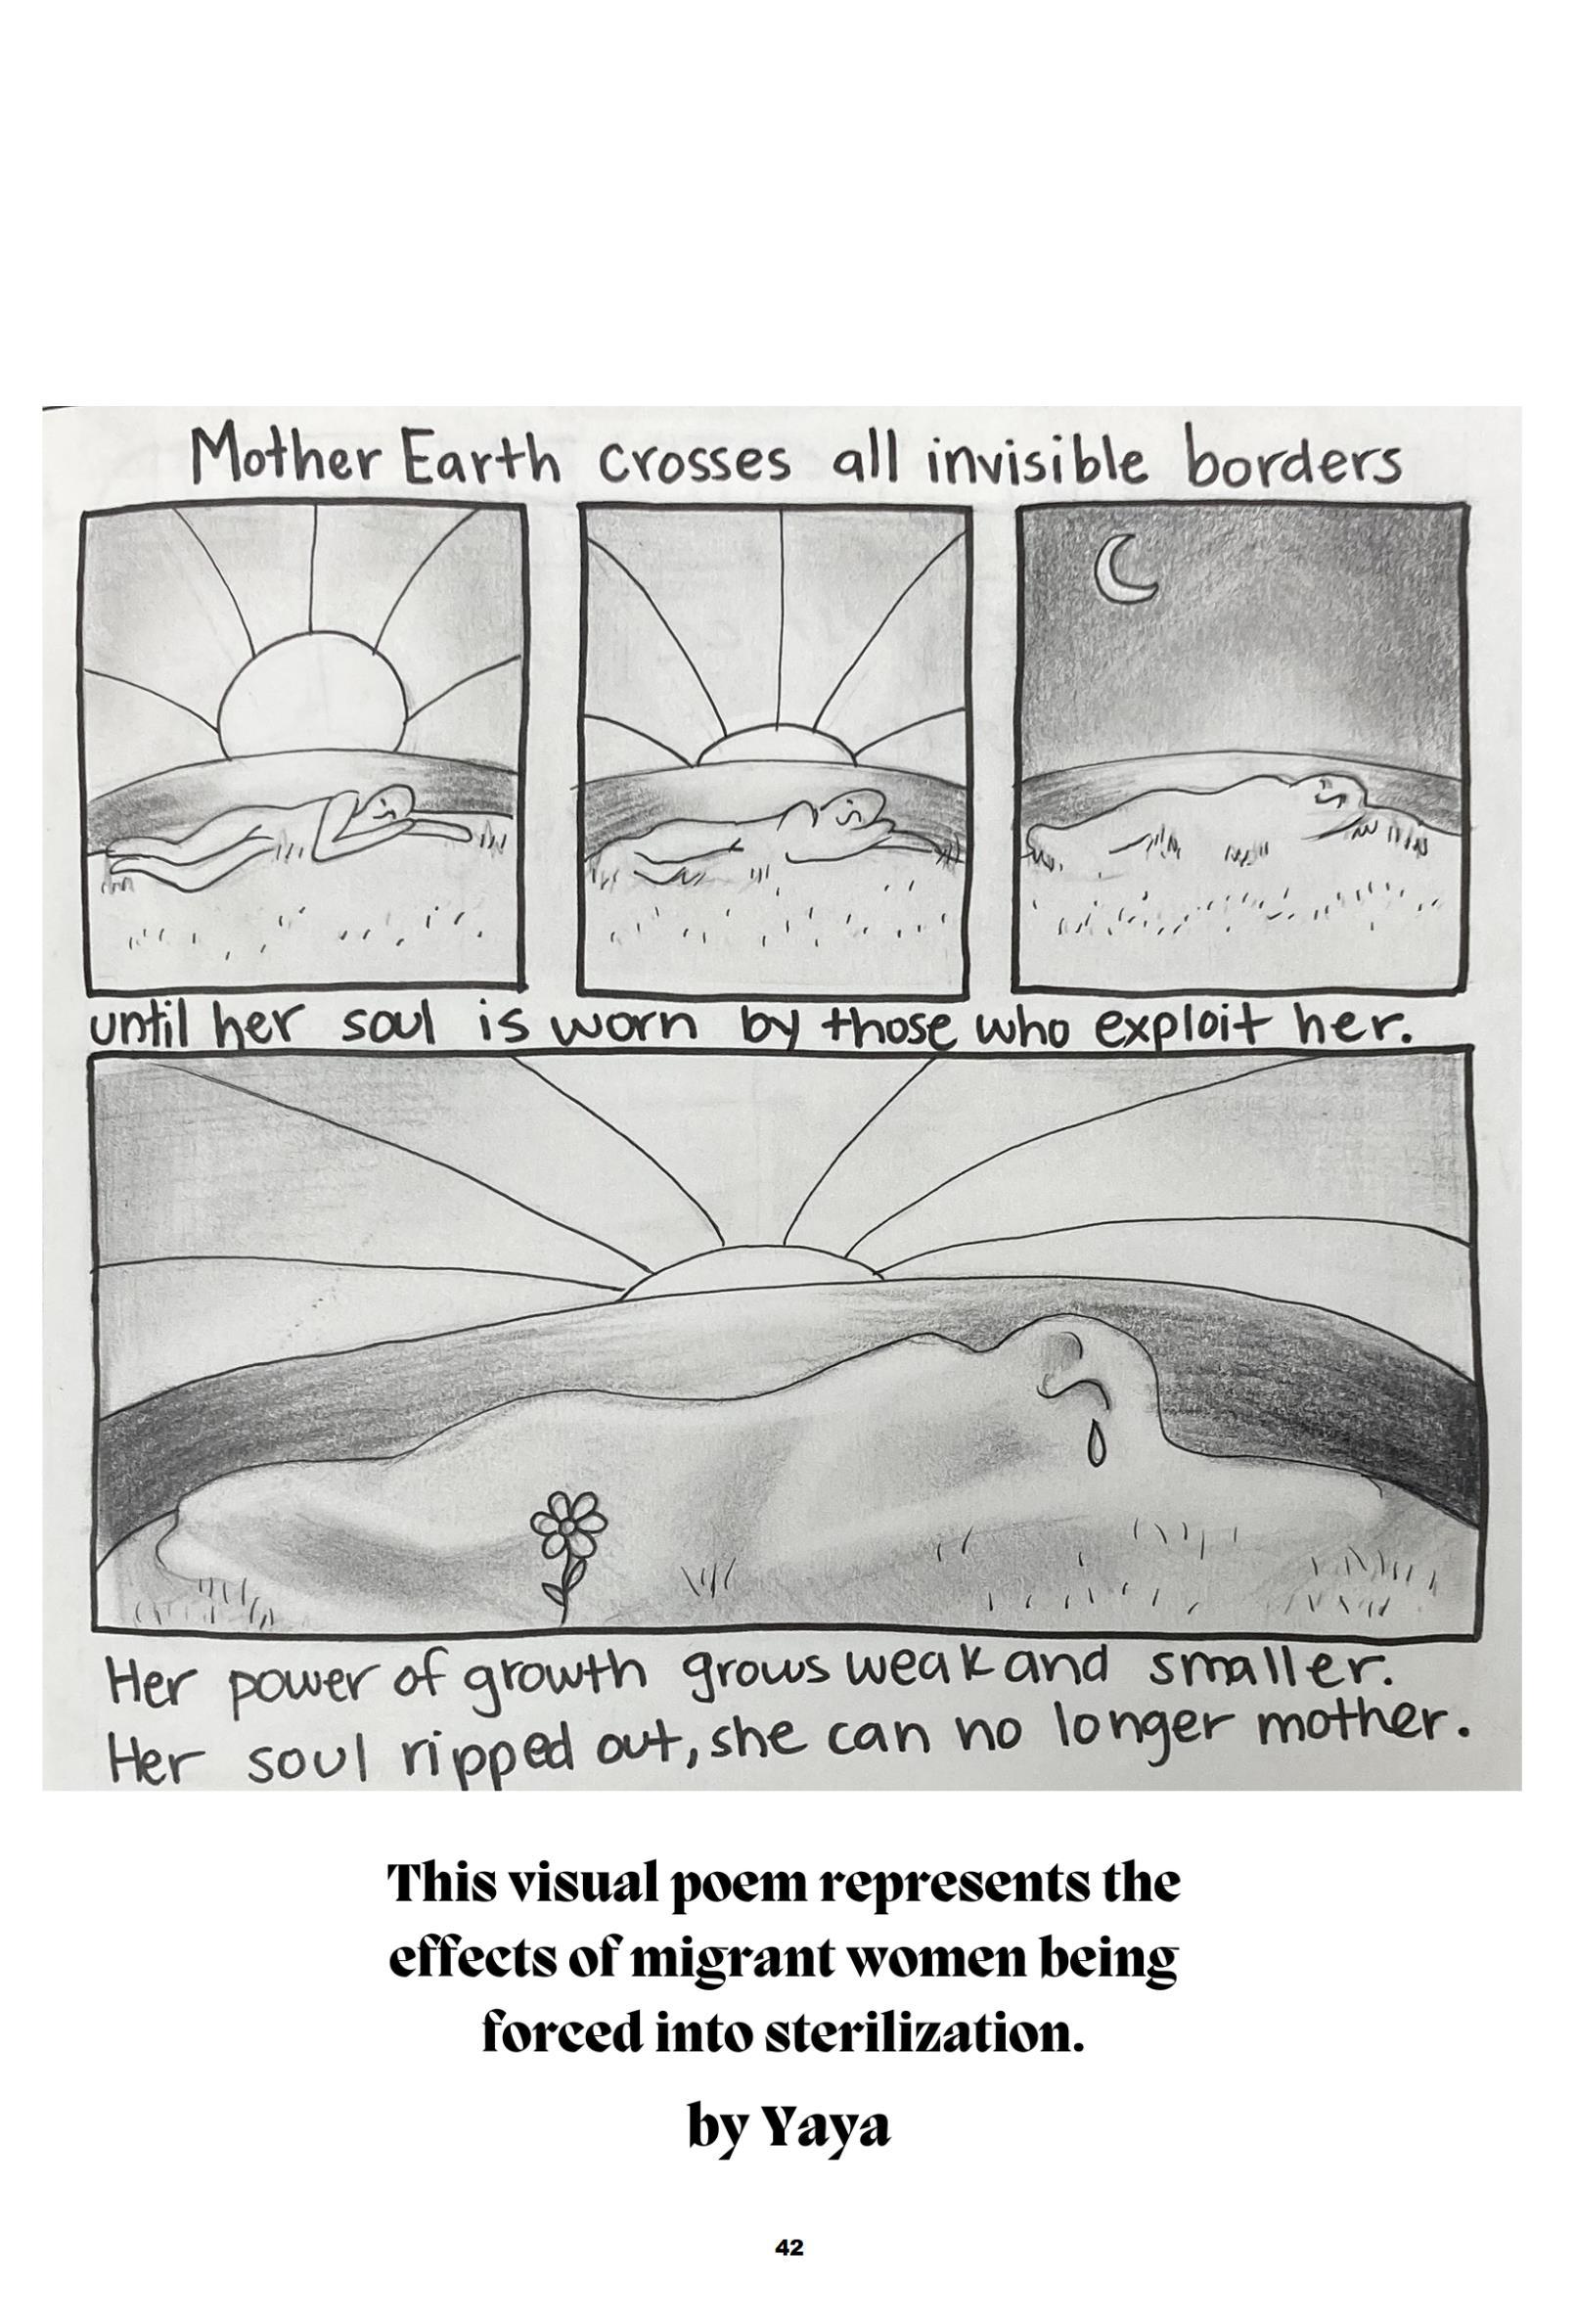 Mother Earth crosses all invisible borders
until her soul is worn by those who exploit her.
Her power of growth grows weak and smaller.
Her soul ripped out, she can no longer mother.
This visual poem represents the
effects of migrant women being
forced into sterilization.
by Yaya
42